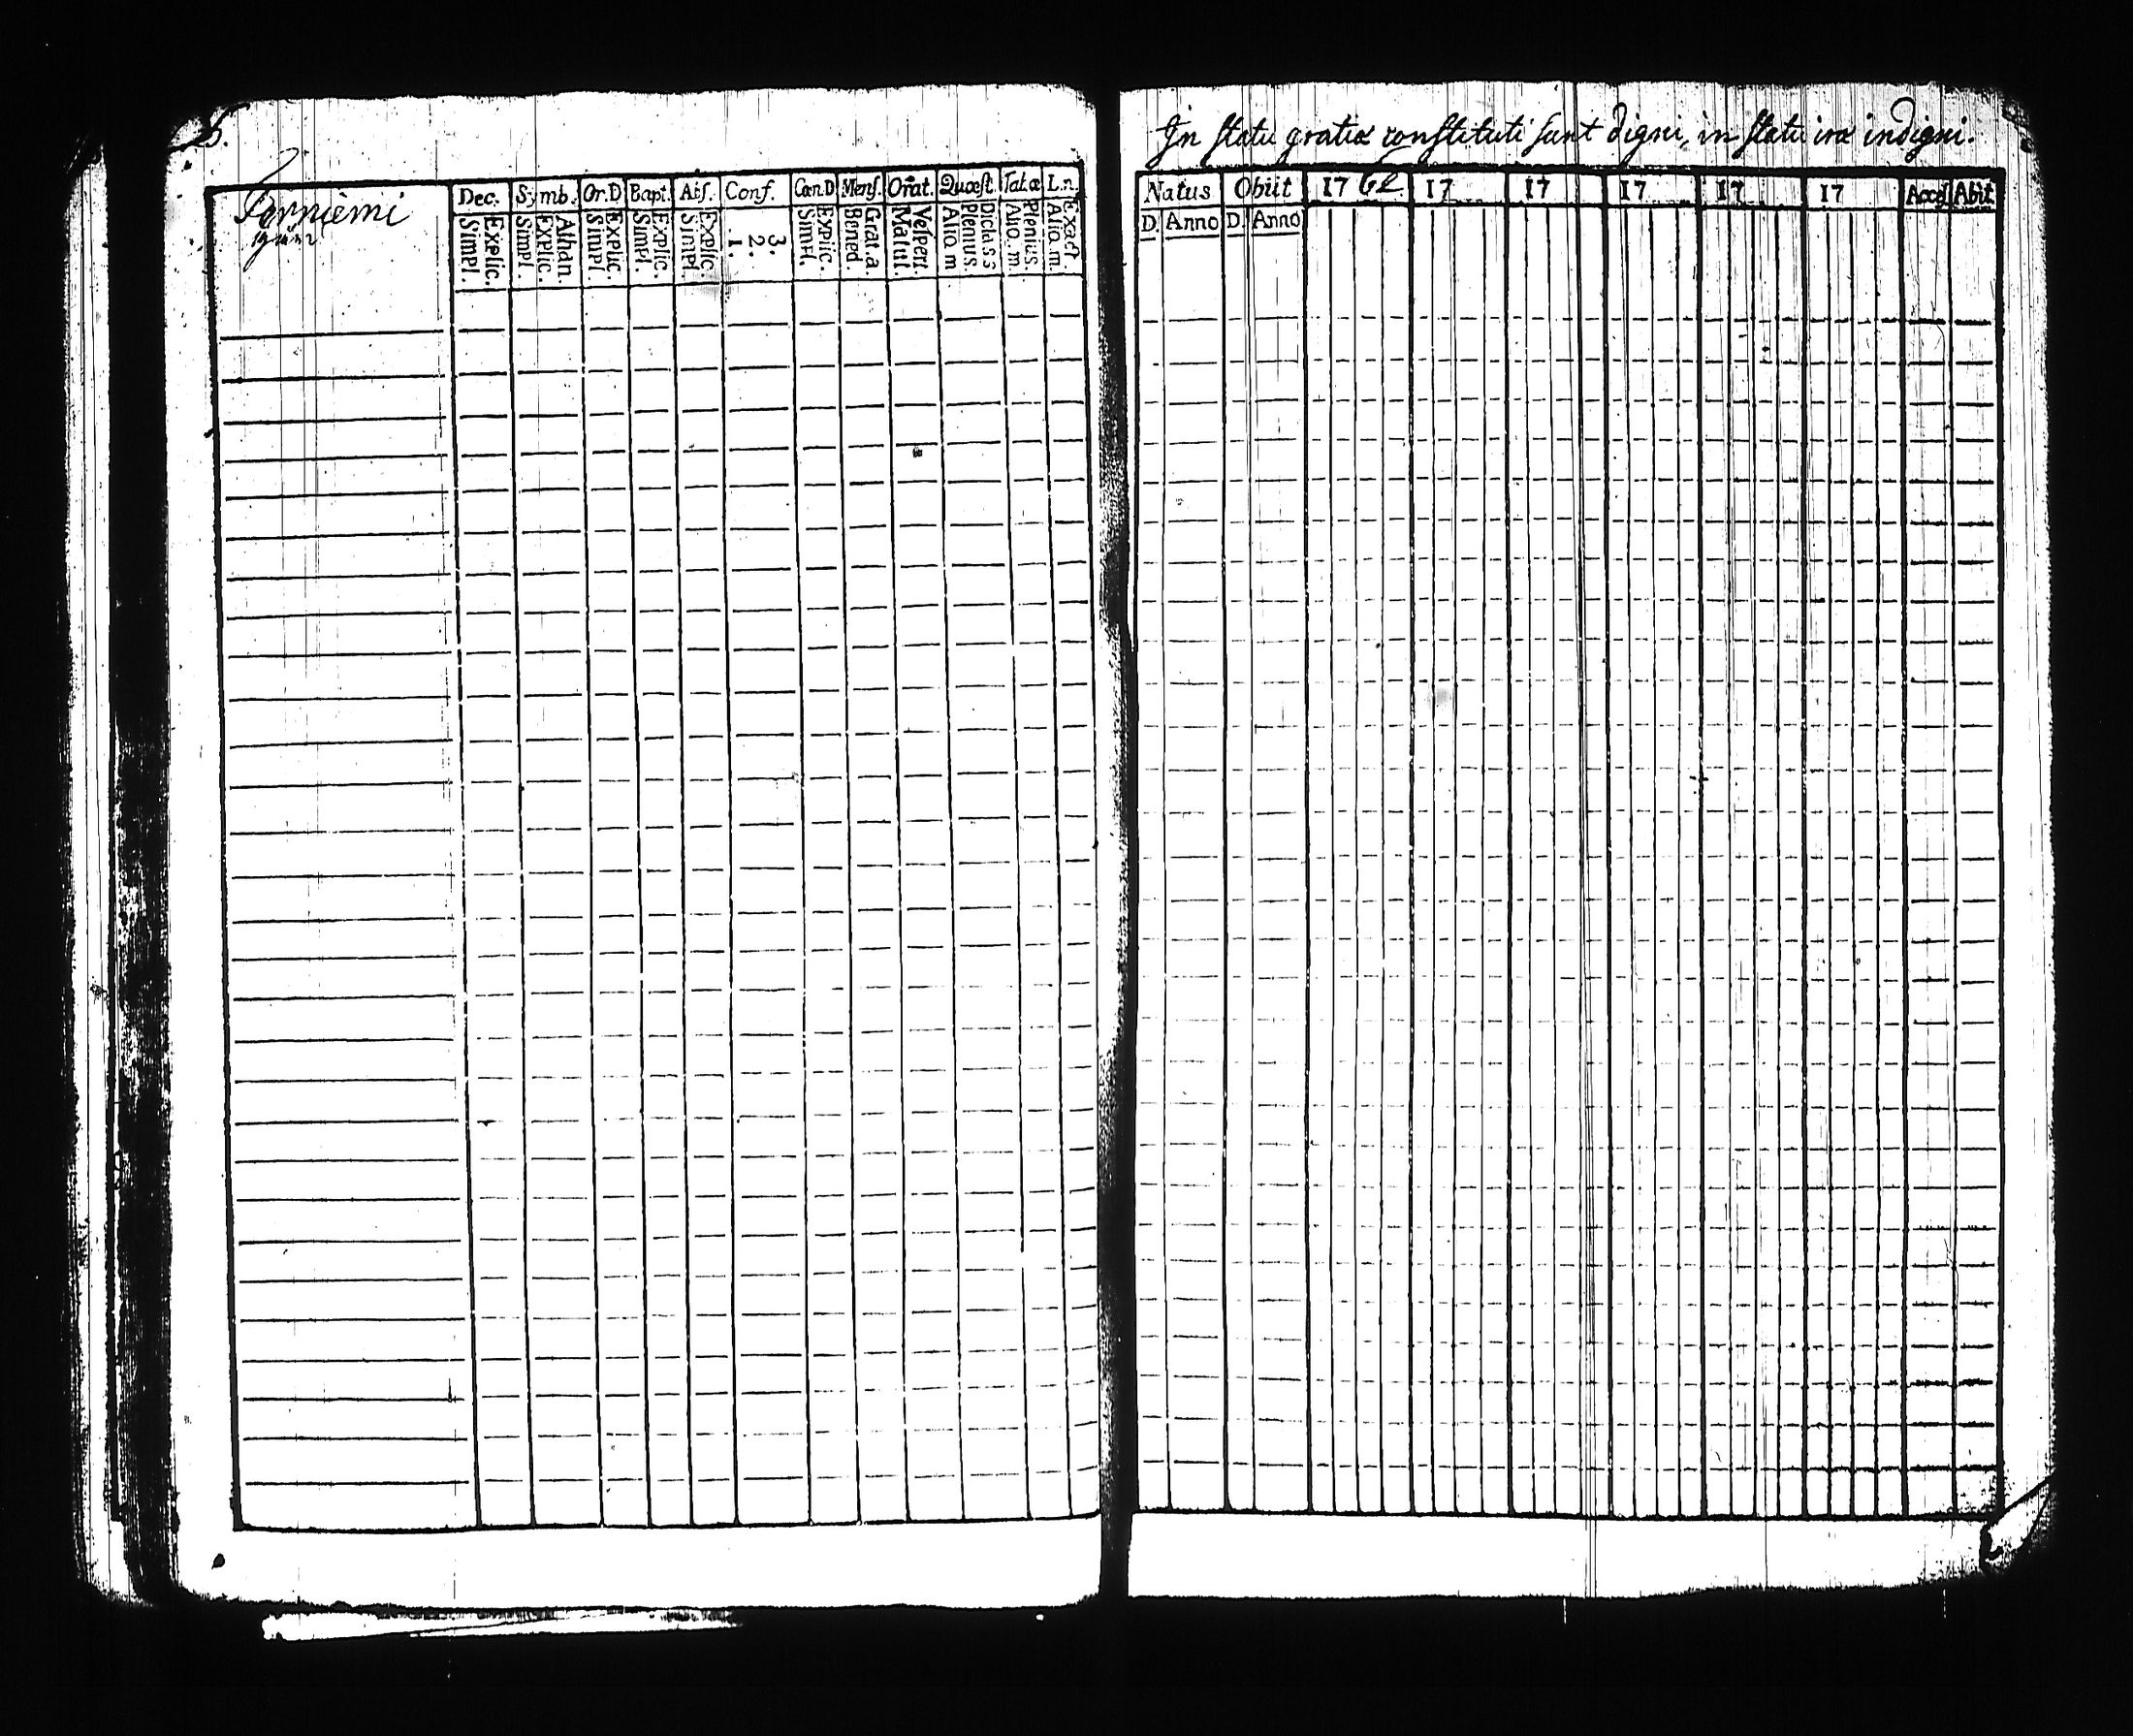 In statu gratiæ constituti sunt digni, in statu iræ indigni.
Perniemi
Dec. Symb. Or.D. Bapt. Abs. Conf. Cœn.D Mens. Orat. Quæst. Tab.œ L.n.
Simpl. Explic. Simpl. Explic. Athan. Simpl. Explic. Simpl. Explic. Simpl. Explic. 1. 2. 3. Simpl. Explic. Bened. Grat.a. Matut. Vesper. Alio m Plenius. Dicla s s Alio. m. Plenius. Alio m. Exact.
Natus Obiit 17 62 17 17 17 17 17 Acces Abiit
D. Anno D. Anno